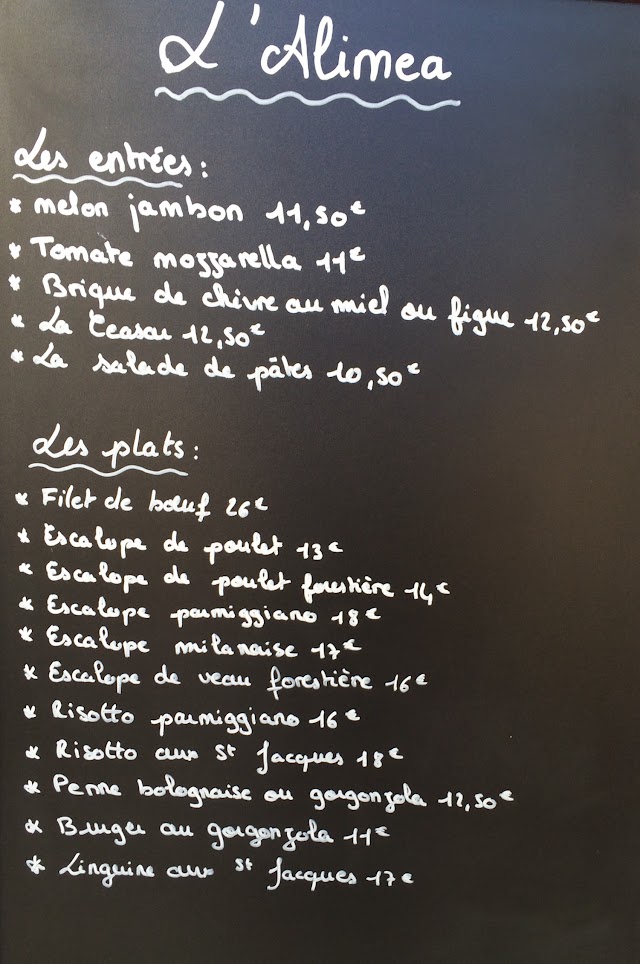 L'Alimea
Les entrées :
* melon jambon 11,50€
* Tomate mozzarella 11€
* Brique de chèvre au miel ou figue 12,50€
* La Ceasar 12,50€
* La salade de pâtes 10,50€
Les plats :
* Filet de bœuf 26€
* Escalope de poulet 13€
* Escalope de poulet forestière 14€
* Escalope parmiggiano 18€
* Escalope milanaise 17€
* Escalope de veau forestière 16€
* Risotto parmiggiano 16€
* Risotto aux St Jacques 18€
* Penne bolognaise ou gorgonzola 12,50€
* Burger au gorgonzola 11€
* Linguine aux St Jacques 17€